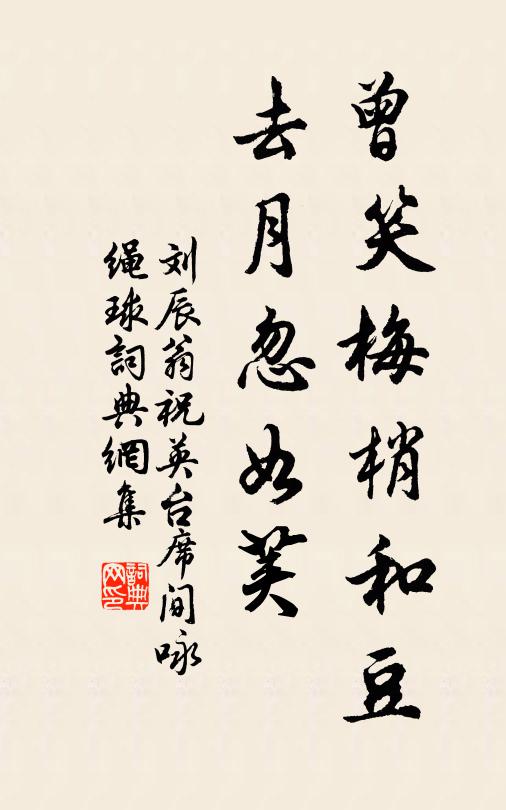 曾笑梅梢和豆
去月忽如芙
刘辰翁祝英台席间咏
繩球詞典網集
詞典网印